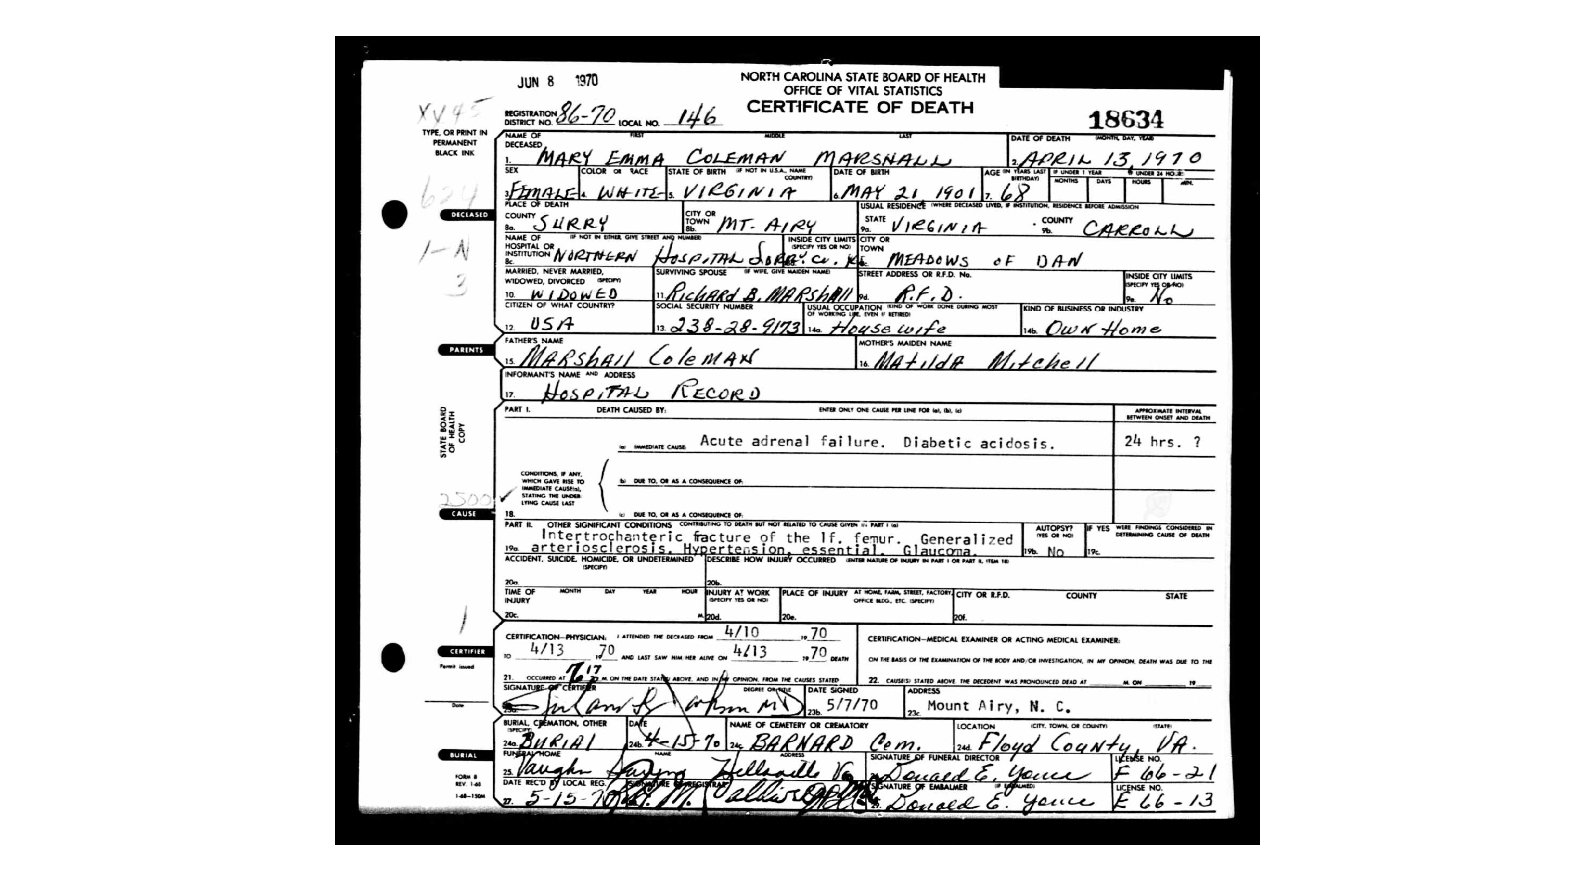 JUN 8 1970
NORTH CAROLINA STATE BOARD OF HEALTH
OFFICE OF VITAL STATISTICS
CERTIFICATE OF DEATH
18634
XV45
REGISTRATION DISTRICT NO. 86-70 LOCAL NO. 146
TYPE, OR PRINT IN PERMANENT BLACK INK
NAME OF DECEASED FIRST MIDDLE LAST DATE OF DEATH (MONTH, DAY, YEAR)
1. MARY EMMA COLEMAN MARSHALL 2. APRIL 13, 1970
SEX COLOR OR RACE STATE OF BIRTH (IF NOT IN U.S.A., NAME COUNTRY) DATE OF BIRTH AGE (IN YEARS LAST BIRTHDAY) IF UNDER 1 YEAR MONTHS DAYS IF UNDER 24 HOURS HOURS MIN.
3. FEMALE 4. WHITE 5. VIRGINIA 6. MAY 21 1901 7. 68
624
DECEASED
PLACE OF DEATH USUAL RESIDENCE (WHERE DECEASED LIVED, IF INSTITUTION, RESIDENCE BEFORE ADMISSION
COUNTY 8a. SURRY CITY OR TOWN 8b. MT. AIRY STATE 9a. VIRGINIA COUNTY 9b. CARROLL
1-N
3
NAME OF HOSPITAL OR INSTITUTION (IF NOT IN EITHER, GIVE STREET AND NUMBER) INSIDE CITY LIMITS (SPECIFY YES OR NO) CITY OR TOWN
8c. NORTHERN HOSPITAL SURRY Co. MEADOWS OF DAN
MARRIED, NEVER MARRIED, WIDOWED, DIVORCED (SPECIFY) SURVIVING SPOUSE (IF WIFE, GIVE MAIDEN NAME) STREET ADDRESS OR R.F.D. No. INSIDE CITY LIMITS (SPECIFY YES OR NO)
10. WIDOWED 11. Richard B. MARSHAll 9d. R.F.D. 9e. No
CITIZEN OF WHAT COUNTRY? SOCIAL SECURITY NUMBER USUAL OCCUPATION (KIND OF WORK DONE DURING MOST OF WORKING LIFE, EVEN IF RETIRED) KIND OF BUSINESS OR INDUSTRY
12. USA 13. 238-28-9173 14a. House wife 14b. OWN Home
PARENTS
FATHER'S NAME MOTHER'S MAIDEN NAME
15. MARShAll ColeMAN 16. MAtildA Mitchell
INFORMANT'S NAME AND ADDRESS
17. HOSPITAL RECORD
STATE BOARD OF HEALTH COPY
PART I. DEATH CAUSED BY: ENTER ONLY ONE CAUSE PER LINE FOR (a), (b), (c) APPROXIMATE INTERVAL BETWEEN ONSET AND DEATH
(a) IMMEDIATE CAUSE Acute adrenal failure. Diabetic acidosis. 24 hrs. ?
CONDITIONS, IF ANY, WHICH GAVE RISE TO IMMEDIATE CAUSE(a), STATING THE UNDERLYING CAUSE LAST
(b) DUE TO, OR AS A CONSEQUENCE OF:
2500
CAUSE
18. (c) DUE TO, OR AS A CONSEQUENCE OF:
PART II. OTHER SIGNIFICANT CONDITIONS CONTRIBUTING TO DEATH BUT NOT RELATED TO CAUSE GIVEN IN PART I (a) AUTOPSY? (YES OR NO) IF YES WERE FINDINGS CONSIDERED IN DETERMINING CAUSE OF DEATH
Intertrochanteric fracture of the lf. femur. Generalized
19a. arteriosclerosis. Hypertension, essential. Glaucoma. 19b. No 19c.
ACCIDENT, SUICIDE, HOMICIDE, OR UNDETERMINED (SPECIFY) DESCRIBE HOW INJURY OCCURRED (ENTER NATURE OF INJURY IN PART I OR PART II, ITEM 18)
20a. 20b.
TIME OF INJURY MONTH DAY YEAR HOUR INJURY AT WORK (SPECIFY YES OR NO) PLACE OF INJURY AT HOME, FARM, STREET, FACTORY, OFFICE BLDG., ETC. (SPECIFY) CITY OR R.F.D. COUNTY STATE
20c. M. 20d. 20e. 20f.
1
CERTIFICATION—PHYSICIAN: I ATTENDED THE DECEASED FROM 4/10 19 70 CERTIFICATION—MEDICAL EXAMINER OR ACTING MEDICAL EXAMINER:
CERTIFIER
TO 4/13 19 70 AND LAST SAW HIM/HER ALIVE ON 4/13 19 70 DEATH ON THE BASIS OF THE EXAMINATION OF THE BODY AND/OR INVESTIGATION, IN MY OPINION, DEATH WAS DUE TO THE
Permit issued
21. OCCURRED AT M. ON THE DATE STATED ABOVE, AND IN MY OPINION, FROM THE CAUSES STATED 22. CAUSE(S) STATED ABOVE. THE DECEDENT WAS PRONOUNCED DEAD AT M. ON 19
SIGNATURE OF CERTIFIER DEGREE OR TITLE DATE SIGNED ADDRESS
Date
23a. MD 23b. 5/7/70 23c. Mount Airy, N. C.
BURIAL, CREMATION, OTHER (SPECIFY) DATE NAME OF CEMETERY OR CREMATORY LOCATION (CITY, TOWN, OR COUNTY) (STATE)
24a. BURIAl 24b. 4-15-70 24c. BARNARD Cem. 24d. Floyd County, VA.
BURIAL
FUNERAL HOME NAME ADDRESS SIGNATURE OF FUNERAL DIRECTOR LICENSE NO.
25. Vaughn Hillsville Va Donald E. F 66-21
FORM 8
REV. 1-68
1-68—150M
DATE REC'D BY LOCAL REG. SIGNATURE OF REGISTRAR SIGNATURE OF EMBALMER (IF EMBALMED) LICENSE NO.
27. 5-15-70 Donald E. E 66-13